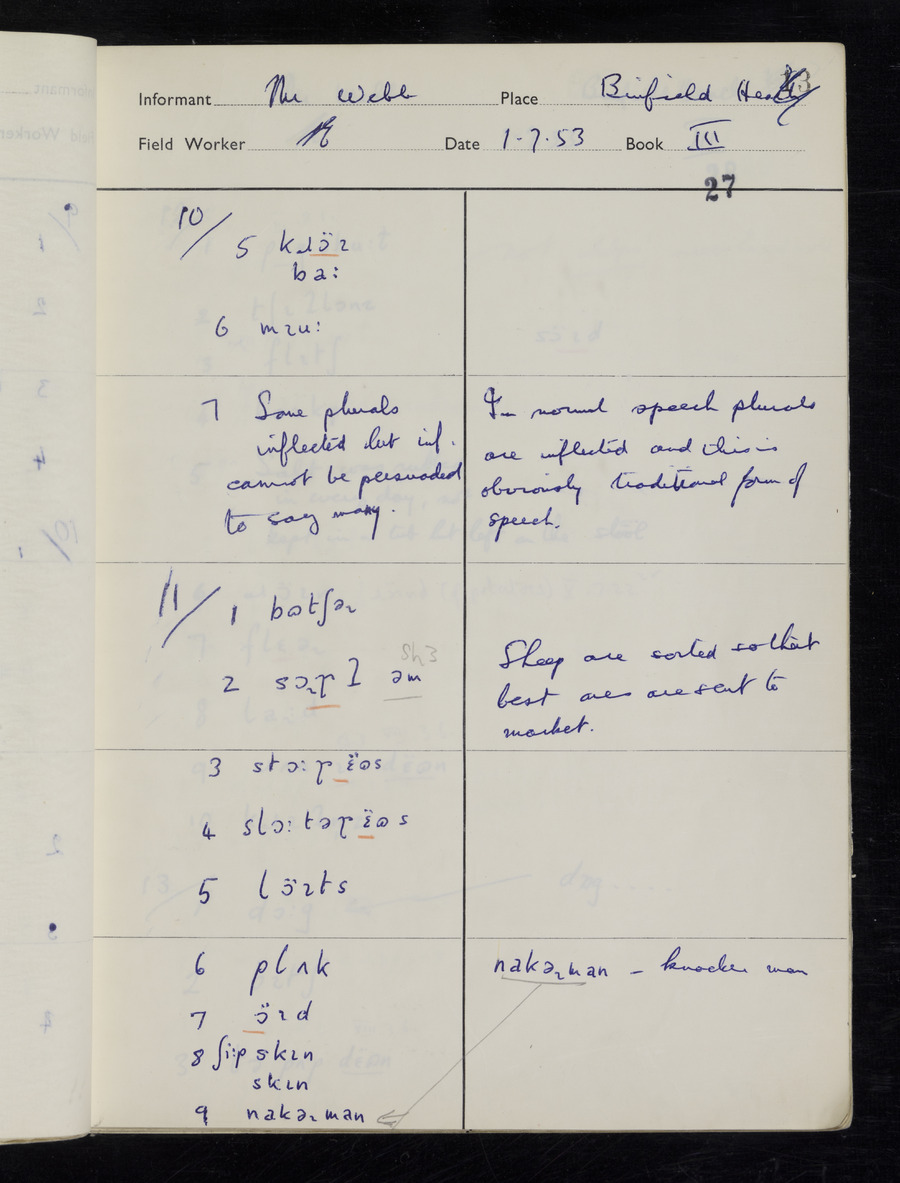 Informant Mr Webb Place Binfield Heath
Field Worker Date 1-7.53 Book III
27
10/
5 kɹöɪ
ba:
6 mɪu:
7 Some plurals
inflected but inf.
cannot be persuaded
to say many.
In normal speech plurals
are inflected and this is
obviously traditional form of
speech.
11/ 1 bətʃəɪ
2 sɔɪt əm
Sh3
Sheep are sorted so that
best ones are sent to
market.
3
4
5 löɪts
6 plʌk
nakəɪman – knacker man
7 öɪd
8 ʃi:p skɪn
skɪn
9 nakəɪman